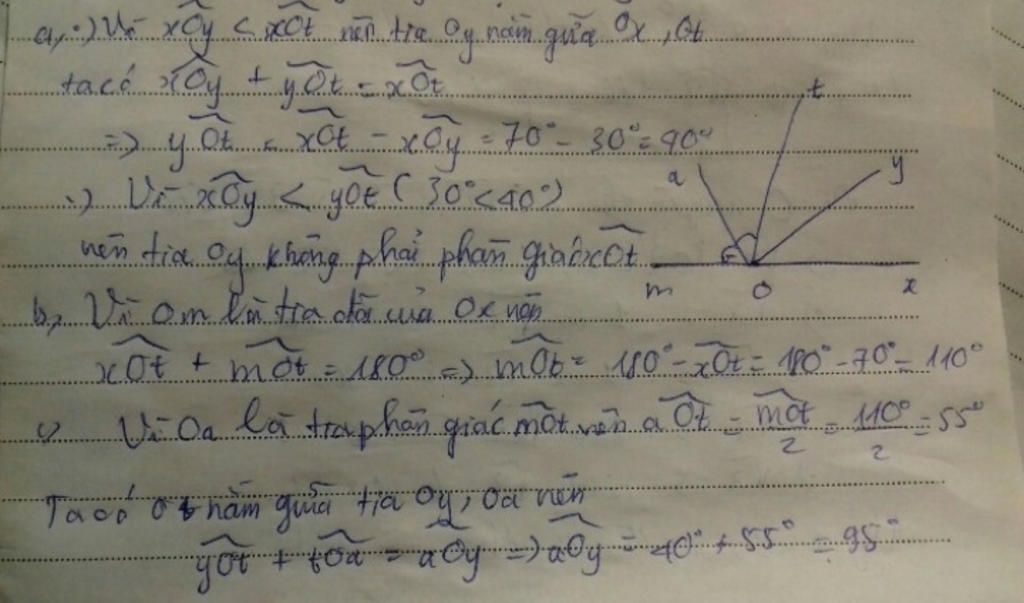 a, .) Vì xOy < xOt nên tia Oy nằm giữa Ox, Ot
ta có xOy + yOt = xOt
=> yOt = xOt - xOy = 70° - 30° = 40°
.) Vì xOy < yOt (30° < 40°)
nên tia Oy không phải phân giác xOt
b, Vì Om là tia đối của Ox nên
xOt + mOt = 180° => mOt = 180° - xOt = 180° - 70° = 110°
c, Vì Oa là tia phân giác mOt nên aOt = mOt/2 = 110°/2 = 55°
Ta có Ot nằm giữa tia Oy, Oa nên
yOt + tOa = aOy => aOy = 40° + 55° = 95°
t
a
y
m
O
x